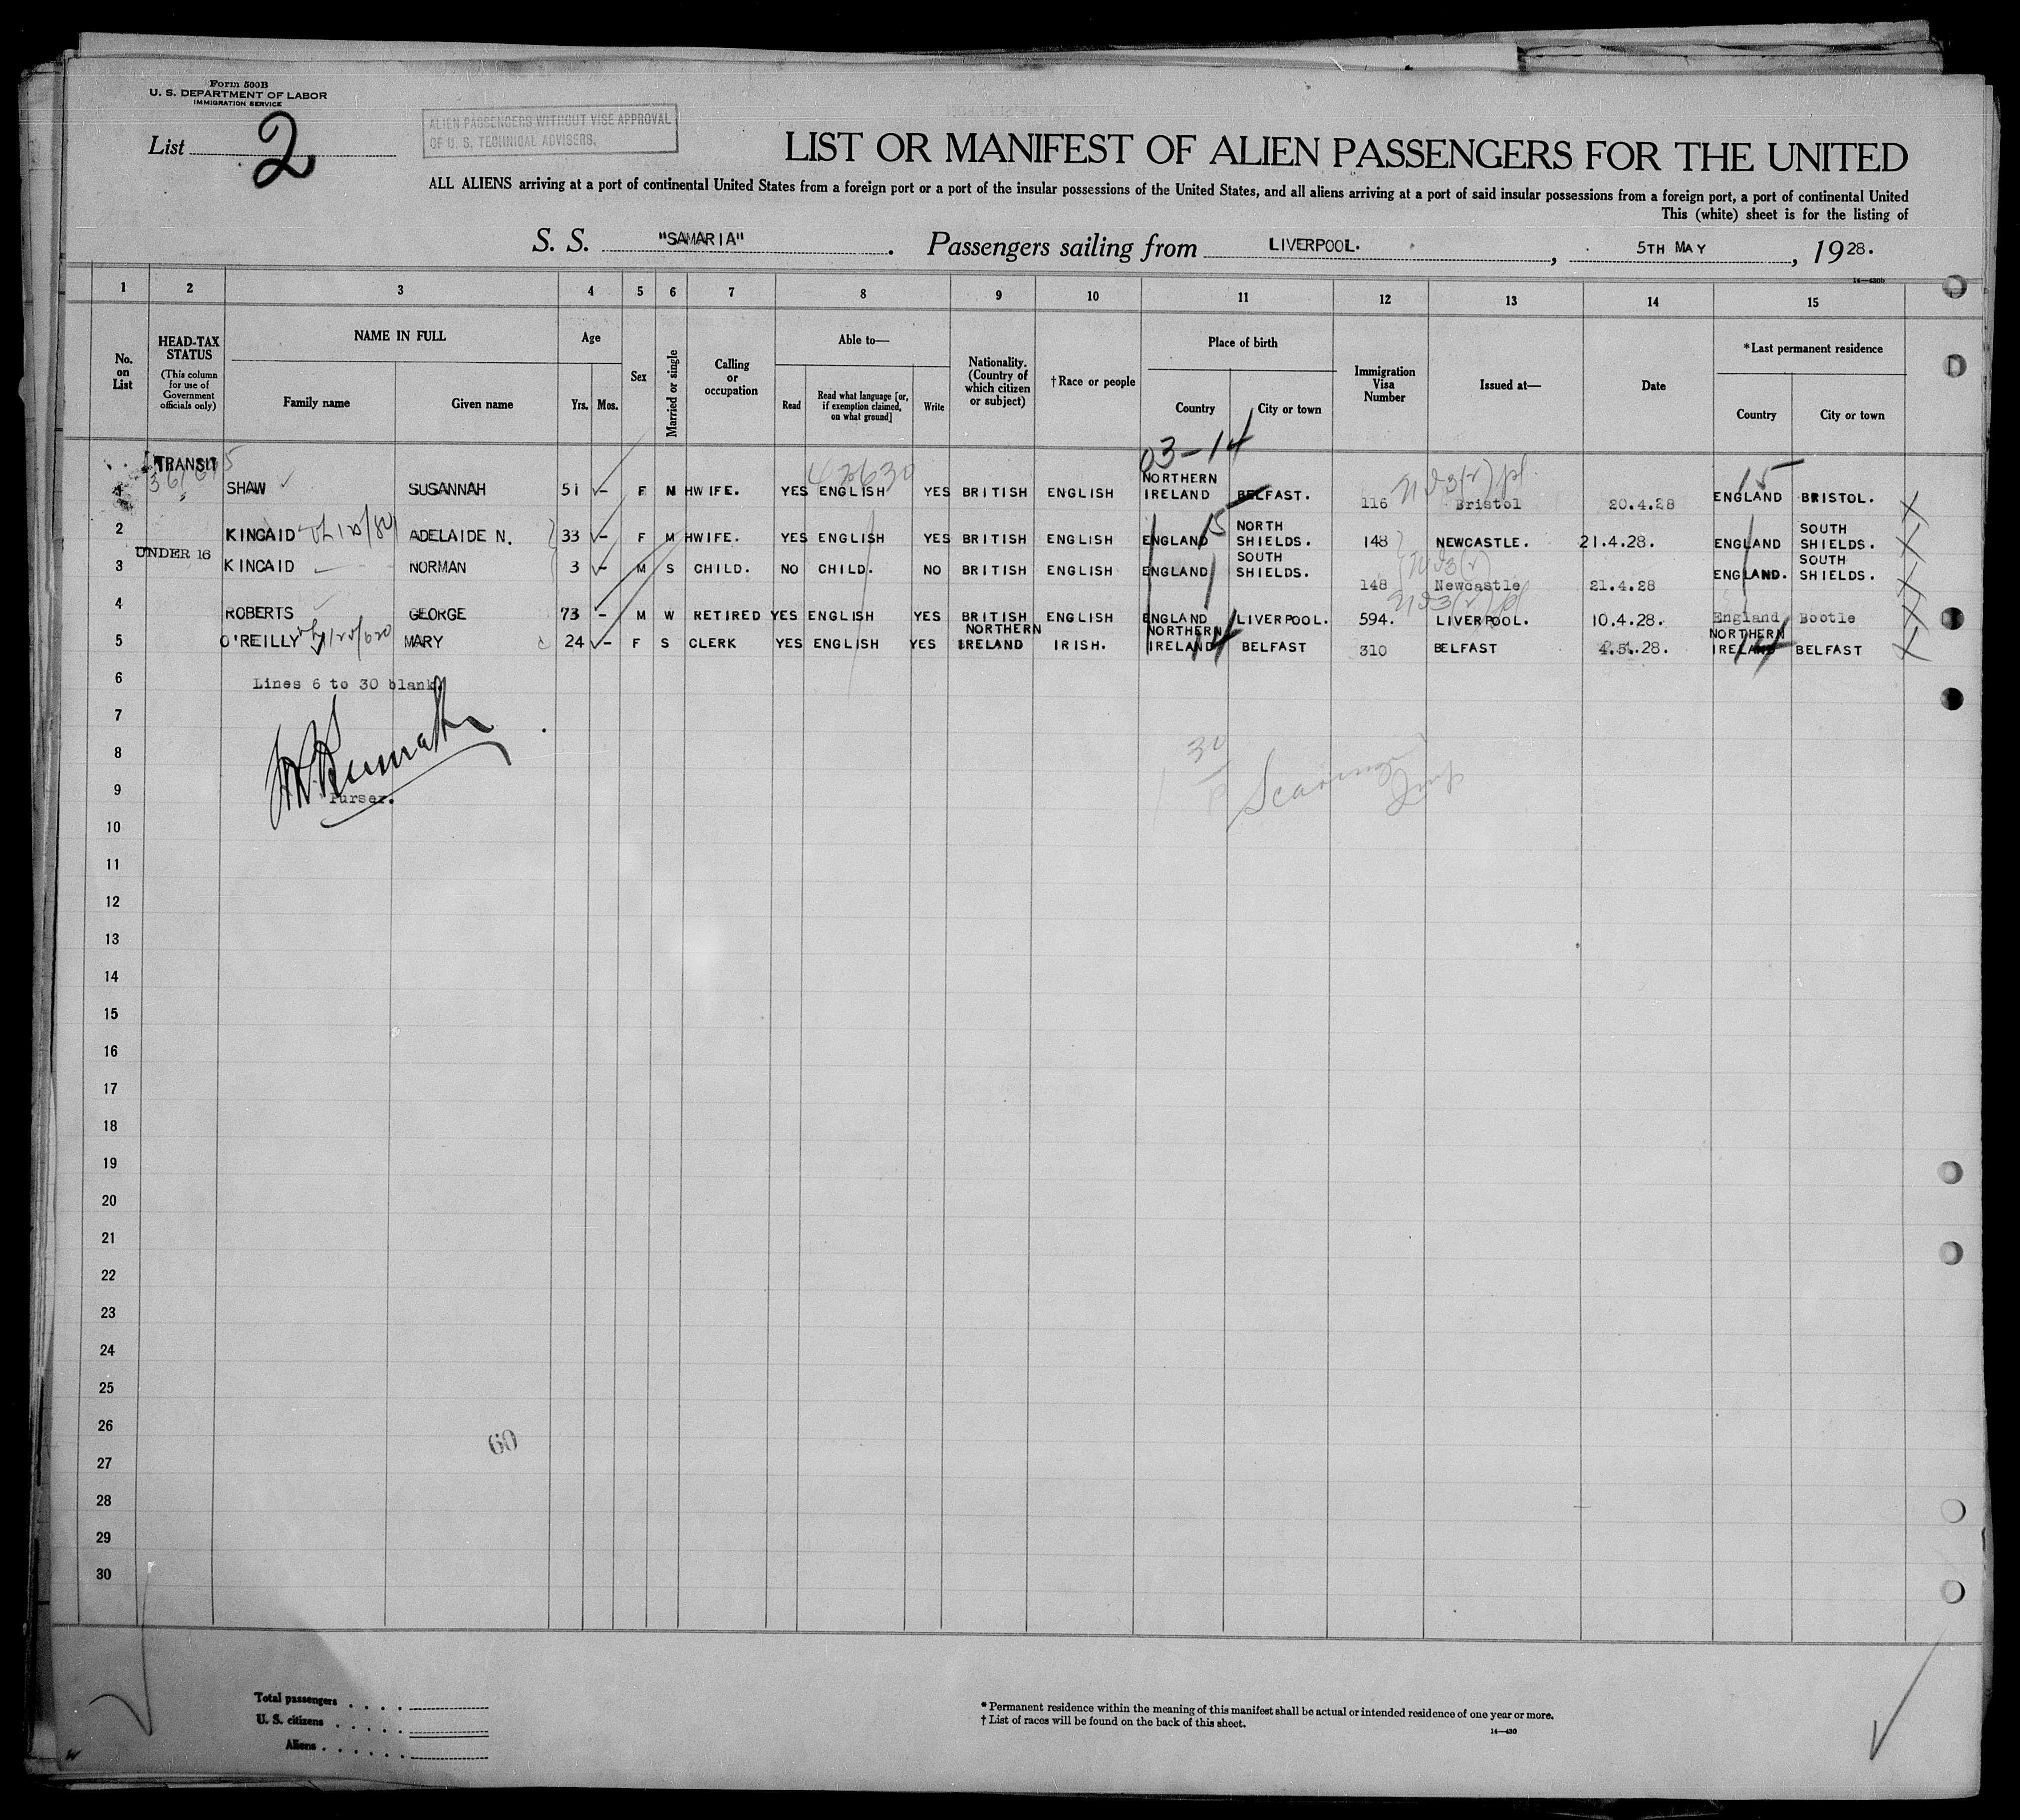 Form 500B
U. S. DEPARTMENT OF LABOR
IMMIGRATION SERVICE
List 2
ALIEN PASSENGERS WITHOUT VISE APPROVAL
OF U. S. TECHNICAL ADVISERS.
LIST OR MANIFEST OF ALIEN PASSENGERS FOR THE UNITED
ALL ALIENS arriving at a port of continental United States from a foreign port or a port of the insular possessions of the United States, and all aliens arriving at a port of said insular possessions from a foreign port, a port of continental United
This (white) sheet is for the listing of
S. S. "SAMARIA". Passengers sailing from LIVERPOOL., 5TH MAY, 1928.
14—430b
1 2 3 4 5 6 7 8 9 10 11 12 13 14 15
No. on List
HEAD-TAX STATUS
(This column for use of Government officials only)
NAME IN FULL
Family name Given name
Age
Yrs. Mos.
Sex
Married or single
Calling or occupation
Able to—
Read
Read what language [or, if exemption claimed, on what ground]
Write
Nationality. (Country of which citizen or subject)
†Race or people
Place of birth
Country City or town
Immigration Visa Number
Issued at—
Date
*Last permanent residence
Country City or town
03-14
TRANSIT
42630
15
SHAW SUSANNAH 51 - F M HWIFE. YES ENGLISH YES BRITISH ENGLISH NORTHERN IRELAND BELFAST. 116 Bristol 20.4.28 ENGLAND BRISTOL. X
2 KINCAID ADELAIDE N. 33 - F M HWIFE. YES ENGLISH YES BRITISH ENGLISH ENGLAND 15 NORTH SHIELDS. 148 NEWCASTLE. 21.4.28. ENGLAND SOUTH SHIELDS. X
UNDER 16
3 KINCAID NORMAN 3 - M S CHILD. NO CHILD. NO BRITISH ENGLISH ENGLAND SOUTH SHIELDS. 148 Newcastle 21.4.28 ENGLAND. SOUTH SHIELDS. X
4 ROBERTS GEORGE 73 - M W RETIRED YES ENGLISH YES BRITISH ENGLISH ENGLAND LIVERPOOL. 594. LIVERPOOL. 10.4.28. England Bootle X
5 O'REILLY MARY 24 - F S CLERK YES ENGLISH YES NORTHERN IRELAND IRISH. NORTHERN IRELAND 14 BELFAST 310 BELFAST 4.5.28. NORTHERN IRELAND 14 BELFAST X
6 Lines 6 to 30 blank.
7
8
9 Purser.
10
11
12
13
14
15
16
17
18
19
20
21
22
23
24
25
26
60
27
28
29
30
Total passengers
U. S. citizens
Aliens
* Permanent residence within the meaning of this manifest shall be actual or intended residence of one year or more.
† List of races will be found on the back of this sheet.
14—430